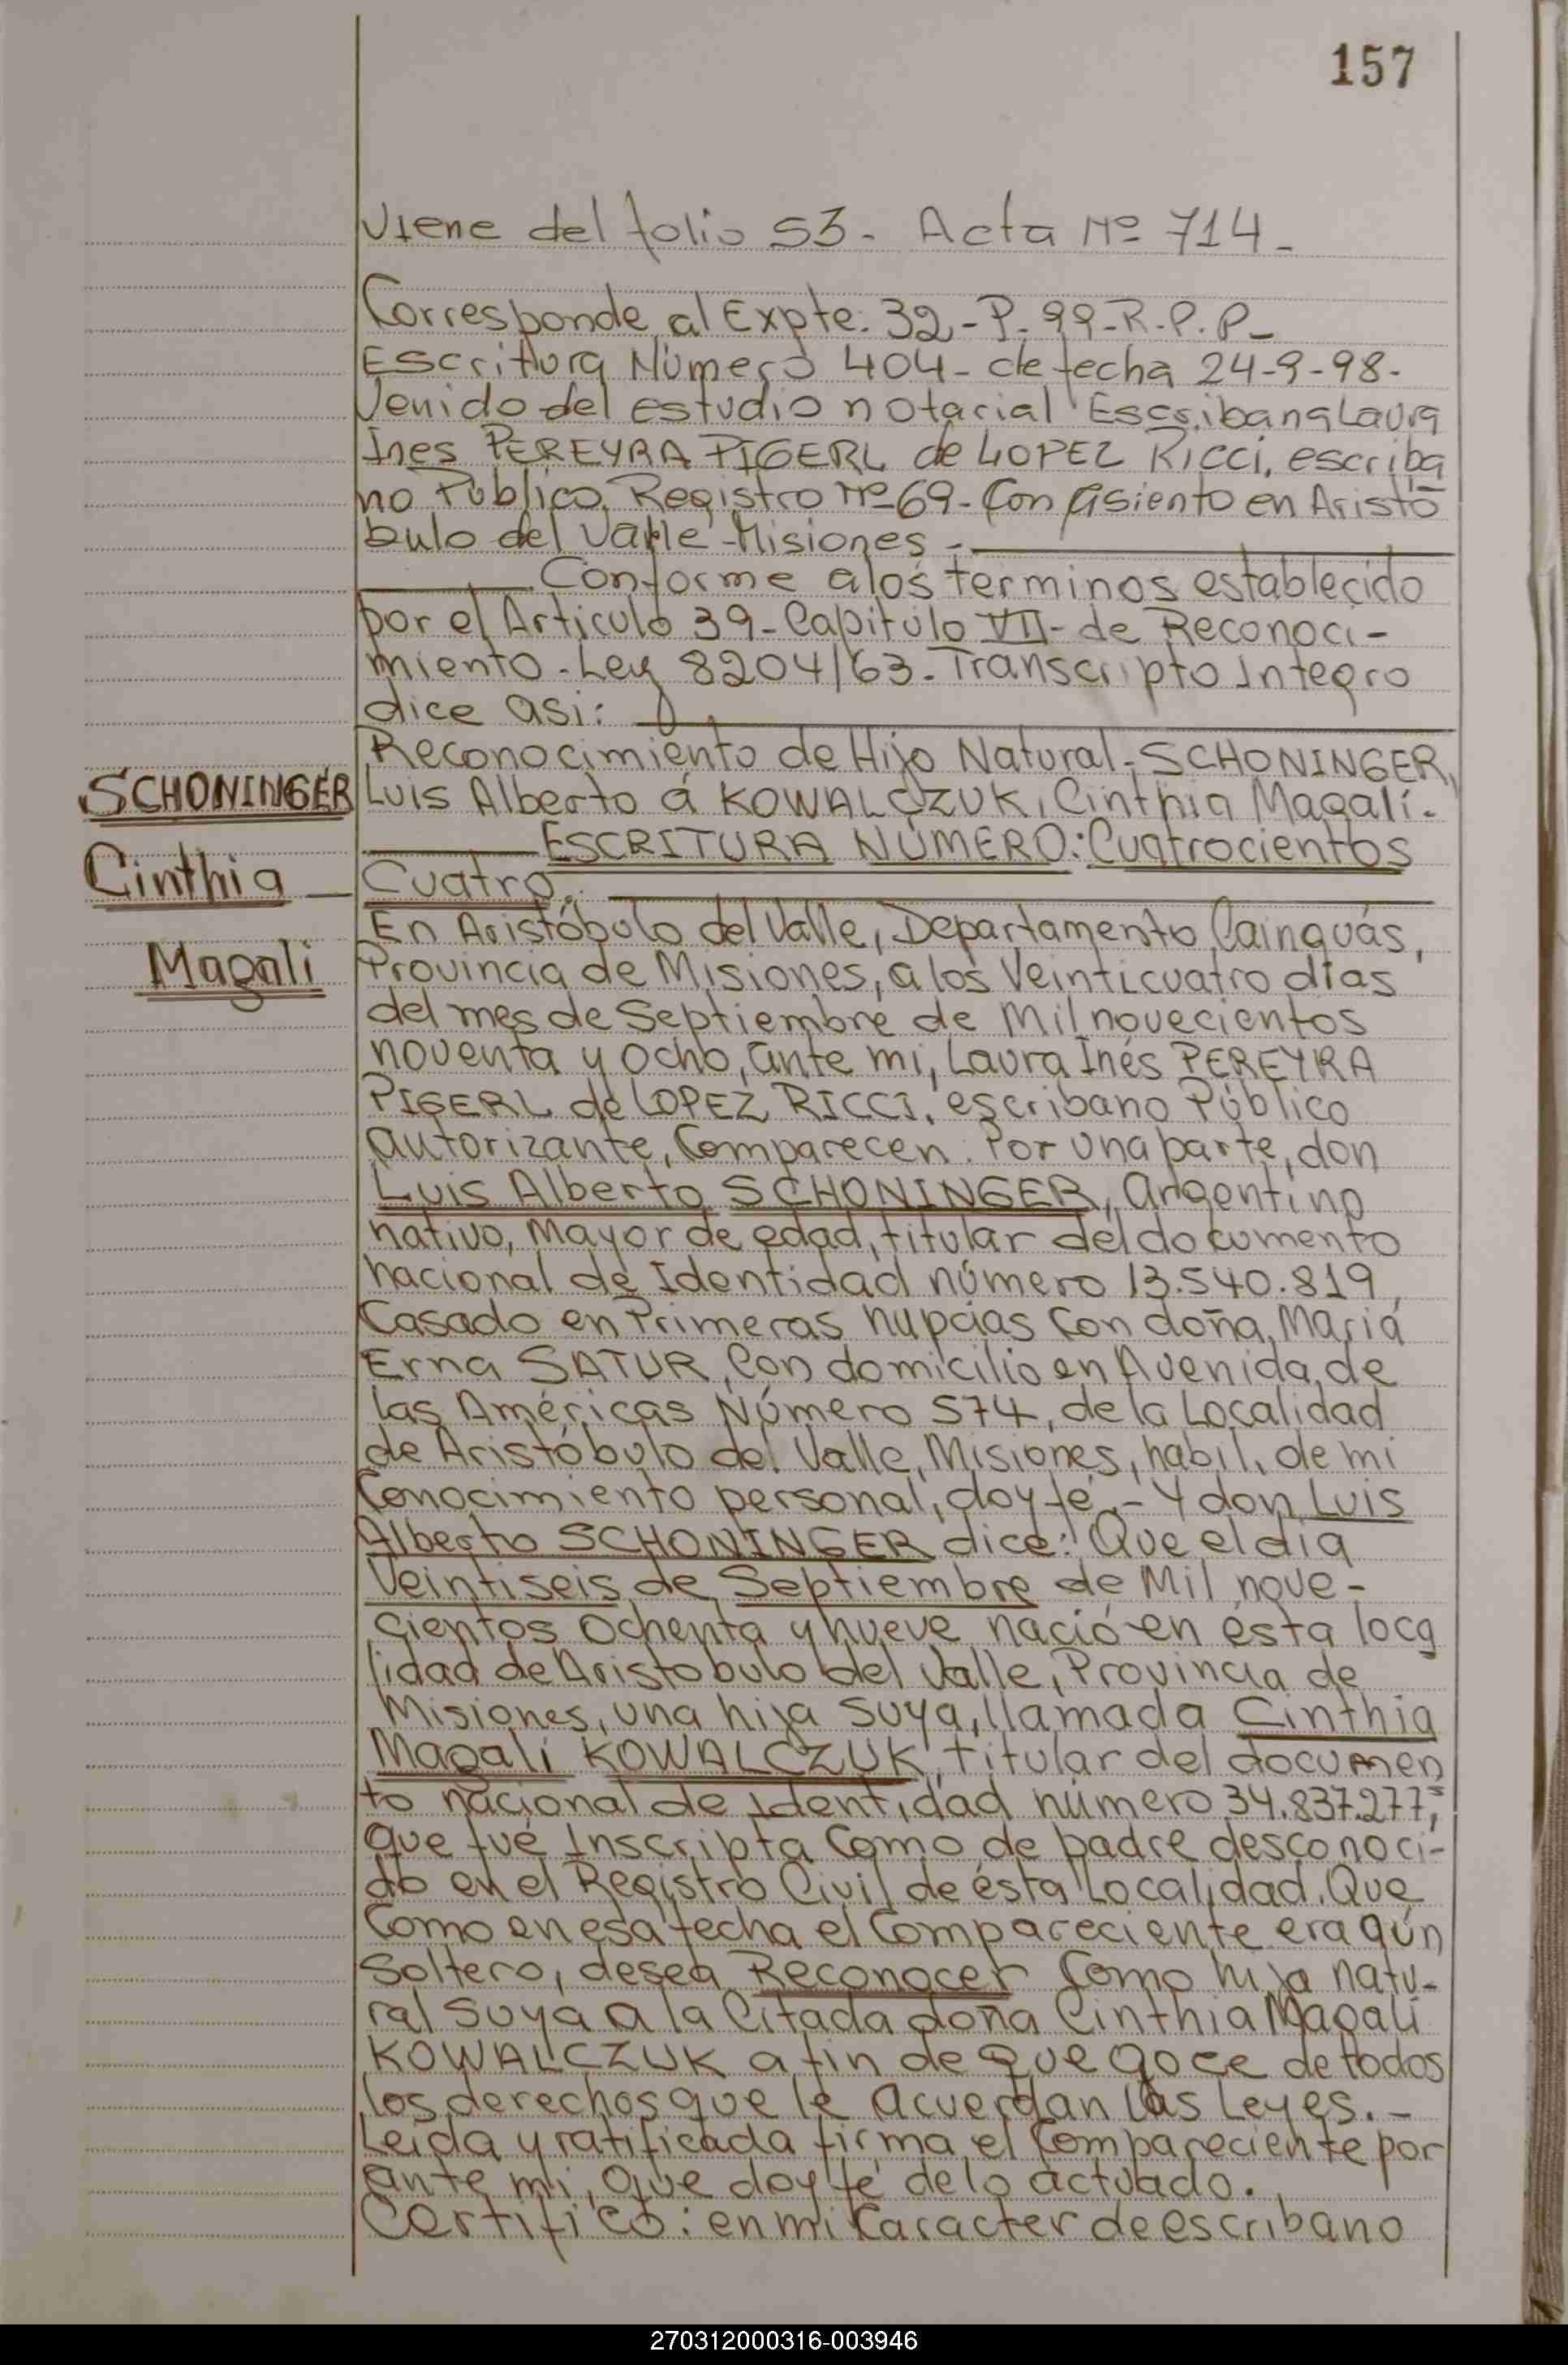 157
Viene del folio 53- Acta Nº 714-
Corresponde al Expte. 32-P-99-R.P.P-
Escritura Número 404- de fecha 24-9-98-
Venido del estudio notarial Escribana Laura
Ines PEREYRA PIGERL de LOPEZ RICCI, escriba
no Público, Registro Nº 69- Con Asiento en Aristó
bulo del Valle-Misiones-
Conforme a los terminos establecido
por el Articulo 39- Capitúlo VII- de Reconoci-
miento-Ley 8204/63-Transcripto Integro
dice asi:
Reconocimiento de Hijo Natural-SCHONINGER,
SCHONINGER
Luis Alberto á KOWALCZUK, Cinthia Magalí.
ESCRITURA NÚMERO: Cuatrocientos
Cinthia
Cuatro.
En Aristóbulo del Valle, Departamento Cainguás,
Magali
Provincia de Misiones, a los Veinticuatro días
del mes de Septiembre de Mil novecientos
noventa y ocho, ante mi, Laura Inés PEREYRA
PIGERL de LOPEZ RICCI, escribano Público
autorizante, Comparecen. Por una parte, don
Luis Alberto SCHONINGER, argentino
nativo, Mayor de edad, titular del documento
nacional de Identidad número 13.540.819,
Casado en Primeras nupcias Con doña, Maria
Erna SATUR, Con domicilio en Avenida de
las Américas Número 574, de la Localidad
de Aristóbulo del Valle, Misiones, habil, de mi
Conocimiento personal, doy fé.- Y don Luis
Alberto SCHONINGER dice: Que el día
Veintiseis de Septiembre de Mil nove-
cientos ochenta y nueve nació en ésta loca
lidad de Aristobulo del Valle, Provincia de
Misiones, una hija suya, llamada Cinthia
Magalí KOWALCZUK, titular del documen
to nacional de Identidad número 34.837.277,
que fué Inscripta Como de padre desconoci-
do en el Registro Civil de ésta Localidad. Que
Como en esa fecha el Compareciente era aún
Soltero, desea Reconocer Como hija natu-
ral Suya a la Citada doña Cinthia Magalí
KOWALCZUK a fin de que goce de todos
los derechos que le acuerdan las Leyes.-
Leida y ratificada firma el Compareciente por
ante mi, Que doy fé de lo actuado.
Certifico: en mi Caracter de escribano
270312000316-003946